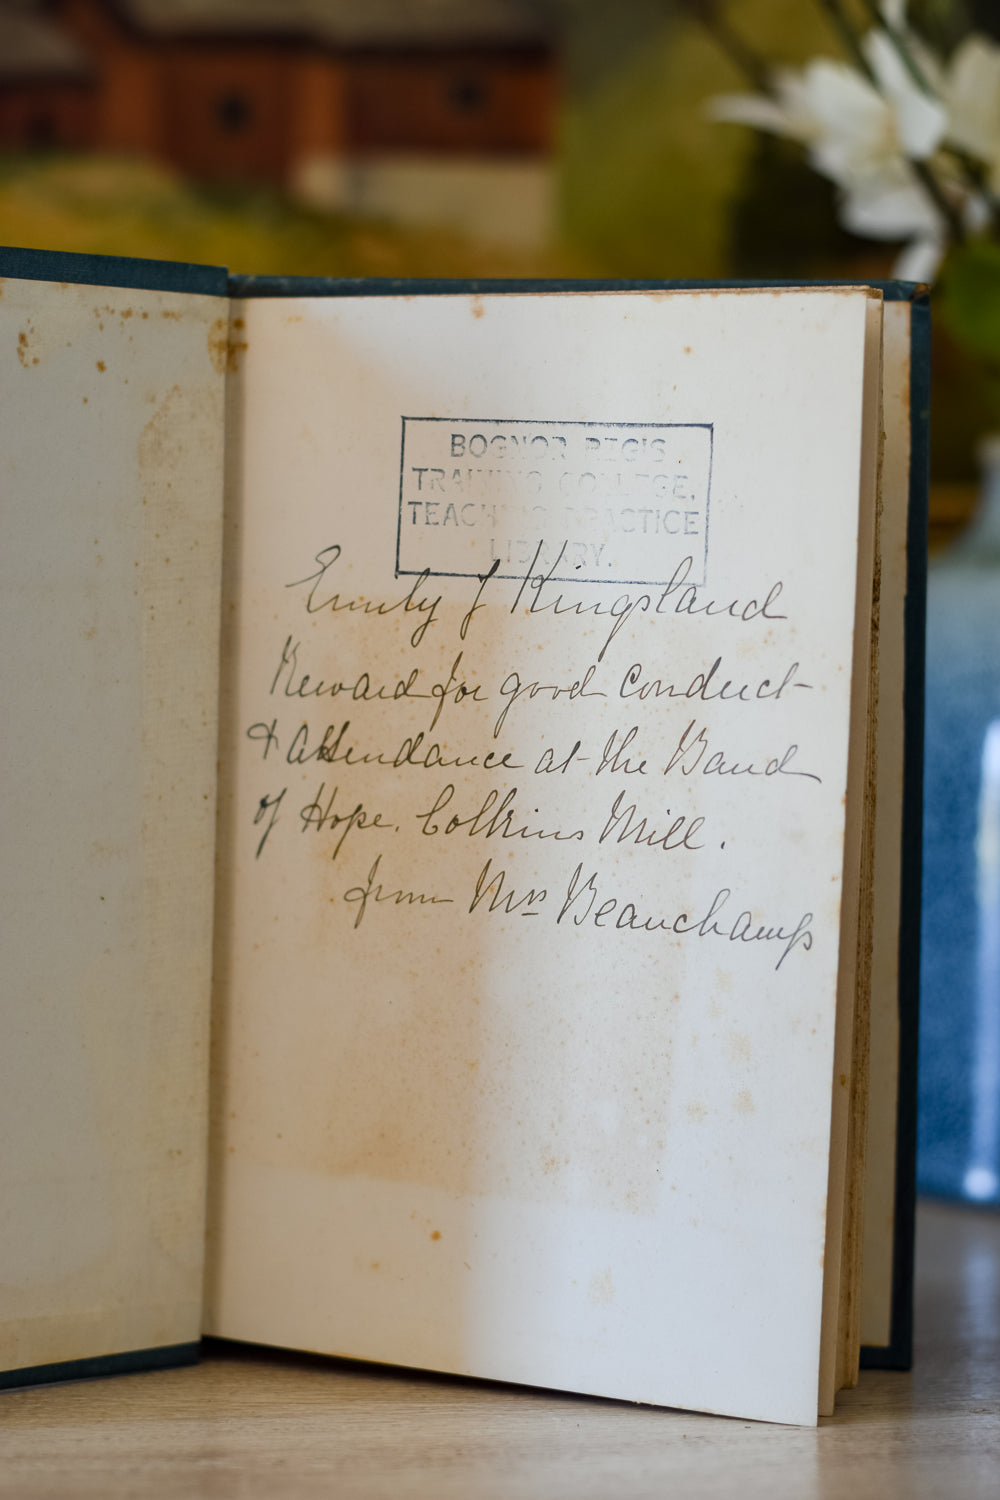 BOGNOR REGIS
TRAINING COLLEGE,
TEACHING PRACTICE
LIBRARY.
Emily J Kingsland
Reward for good conduct
& attendance at the Band
of Hope. Colkins Mill.
from Mrs Beauchamp